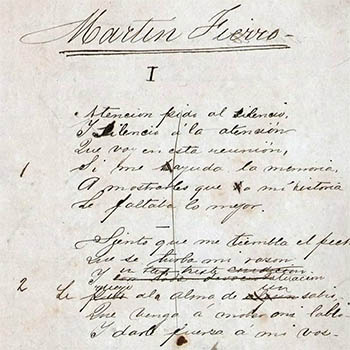 Martin Fierro
I
Atencion pido al silencio,
Y silencio á la atención
Que voy en esta reunión,
1 Si me ayuda la memoria,
A mostrarles que a mi historia
Le faltaba lo mejor.
Siento que me tiembla el pech
Que se turba mi razon
Y
2 Le pido al alma de un sabio,
Que venga a mover mi labi
Y dar fuerza a mi voz.